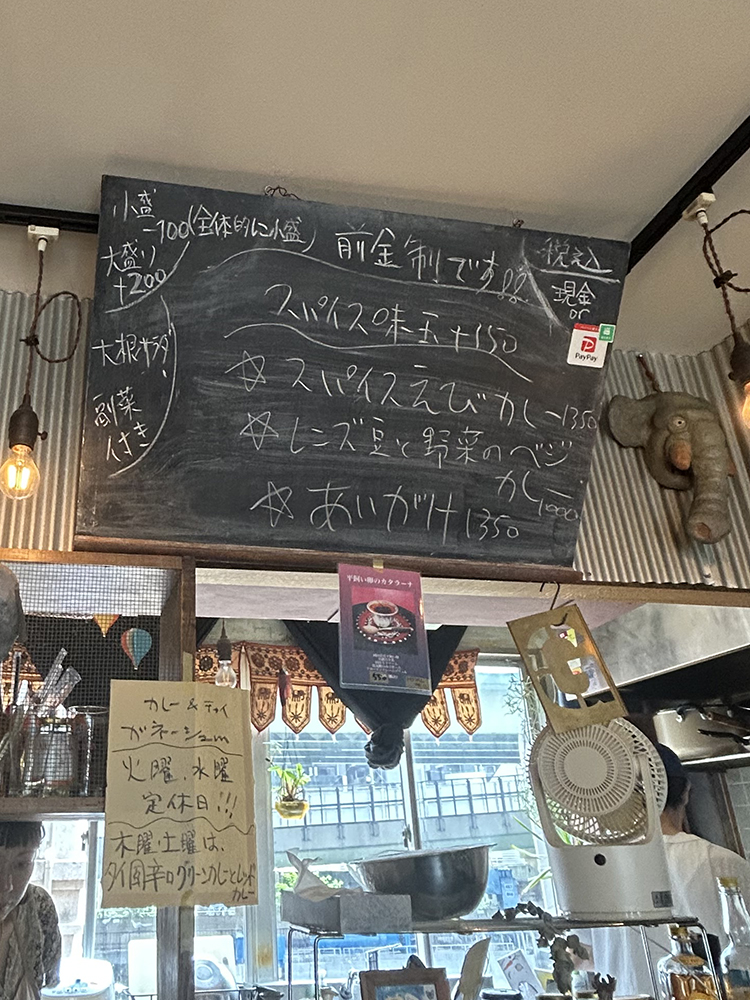 小盛
-100(全体的に小盛)
大盛り
+200
大根サラダ
副菜
付き
前金制です!!
税込
現金
or
PayPay
スパイス味玉+150
☆スパイスえびカレー1350
☆レンズ豆と野菜のベジ
カレー1000
☆あいがけ1350
平飼い卵のカタラーナ
カレー&チャイ
ガネーシュm
火曜、水曜
定休日!!!
木曜・土曜は、
タイ国辛口グリーンカレーとレッド
カレー